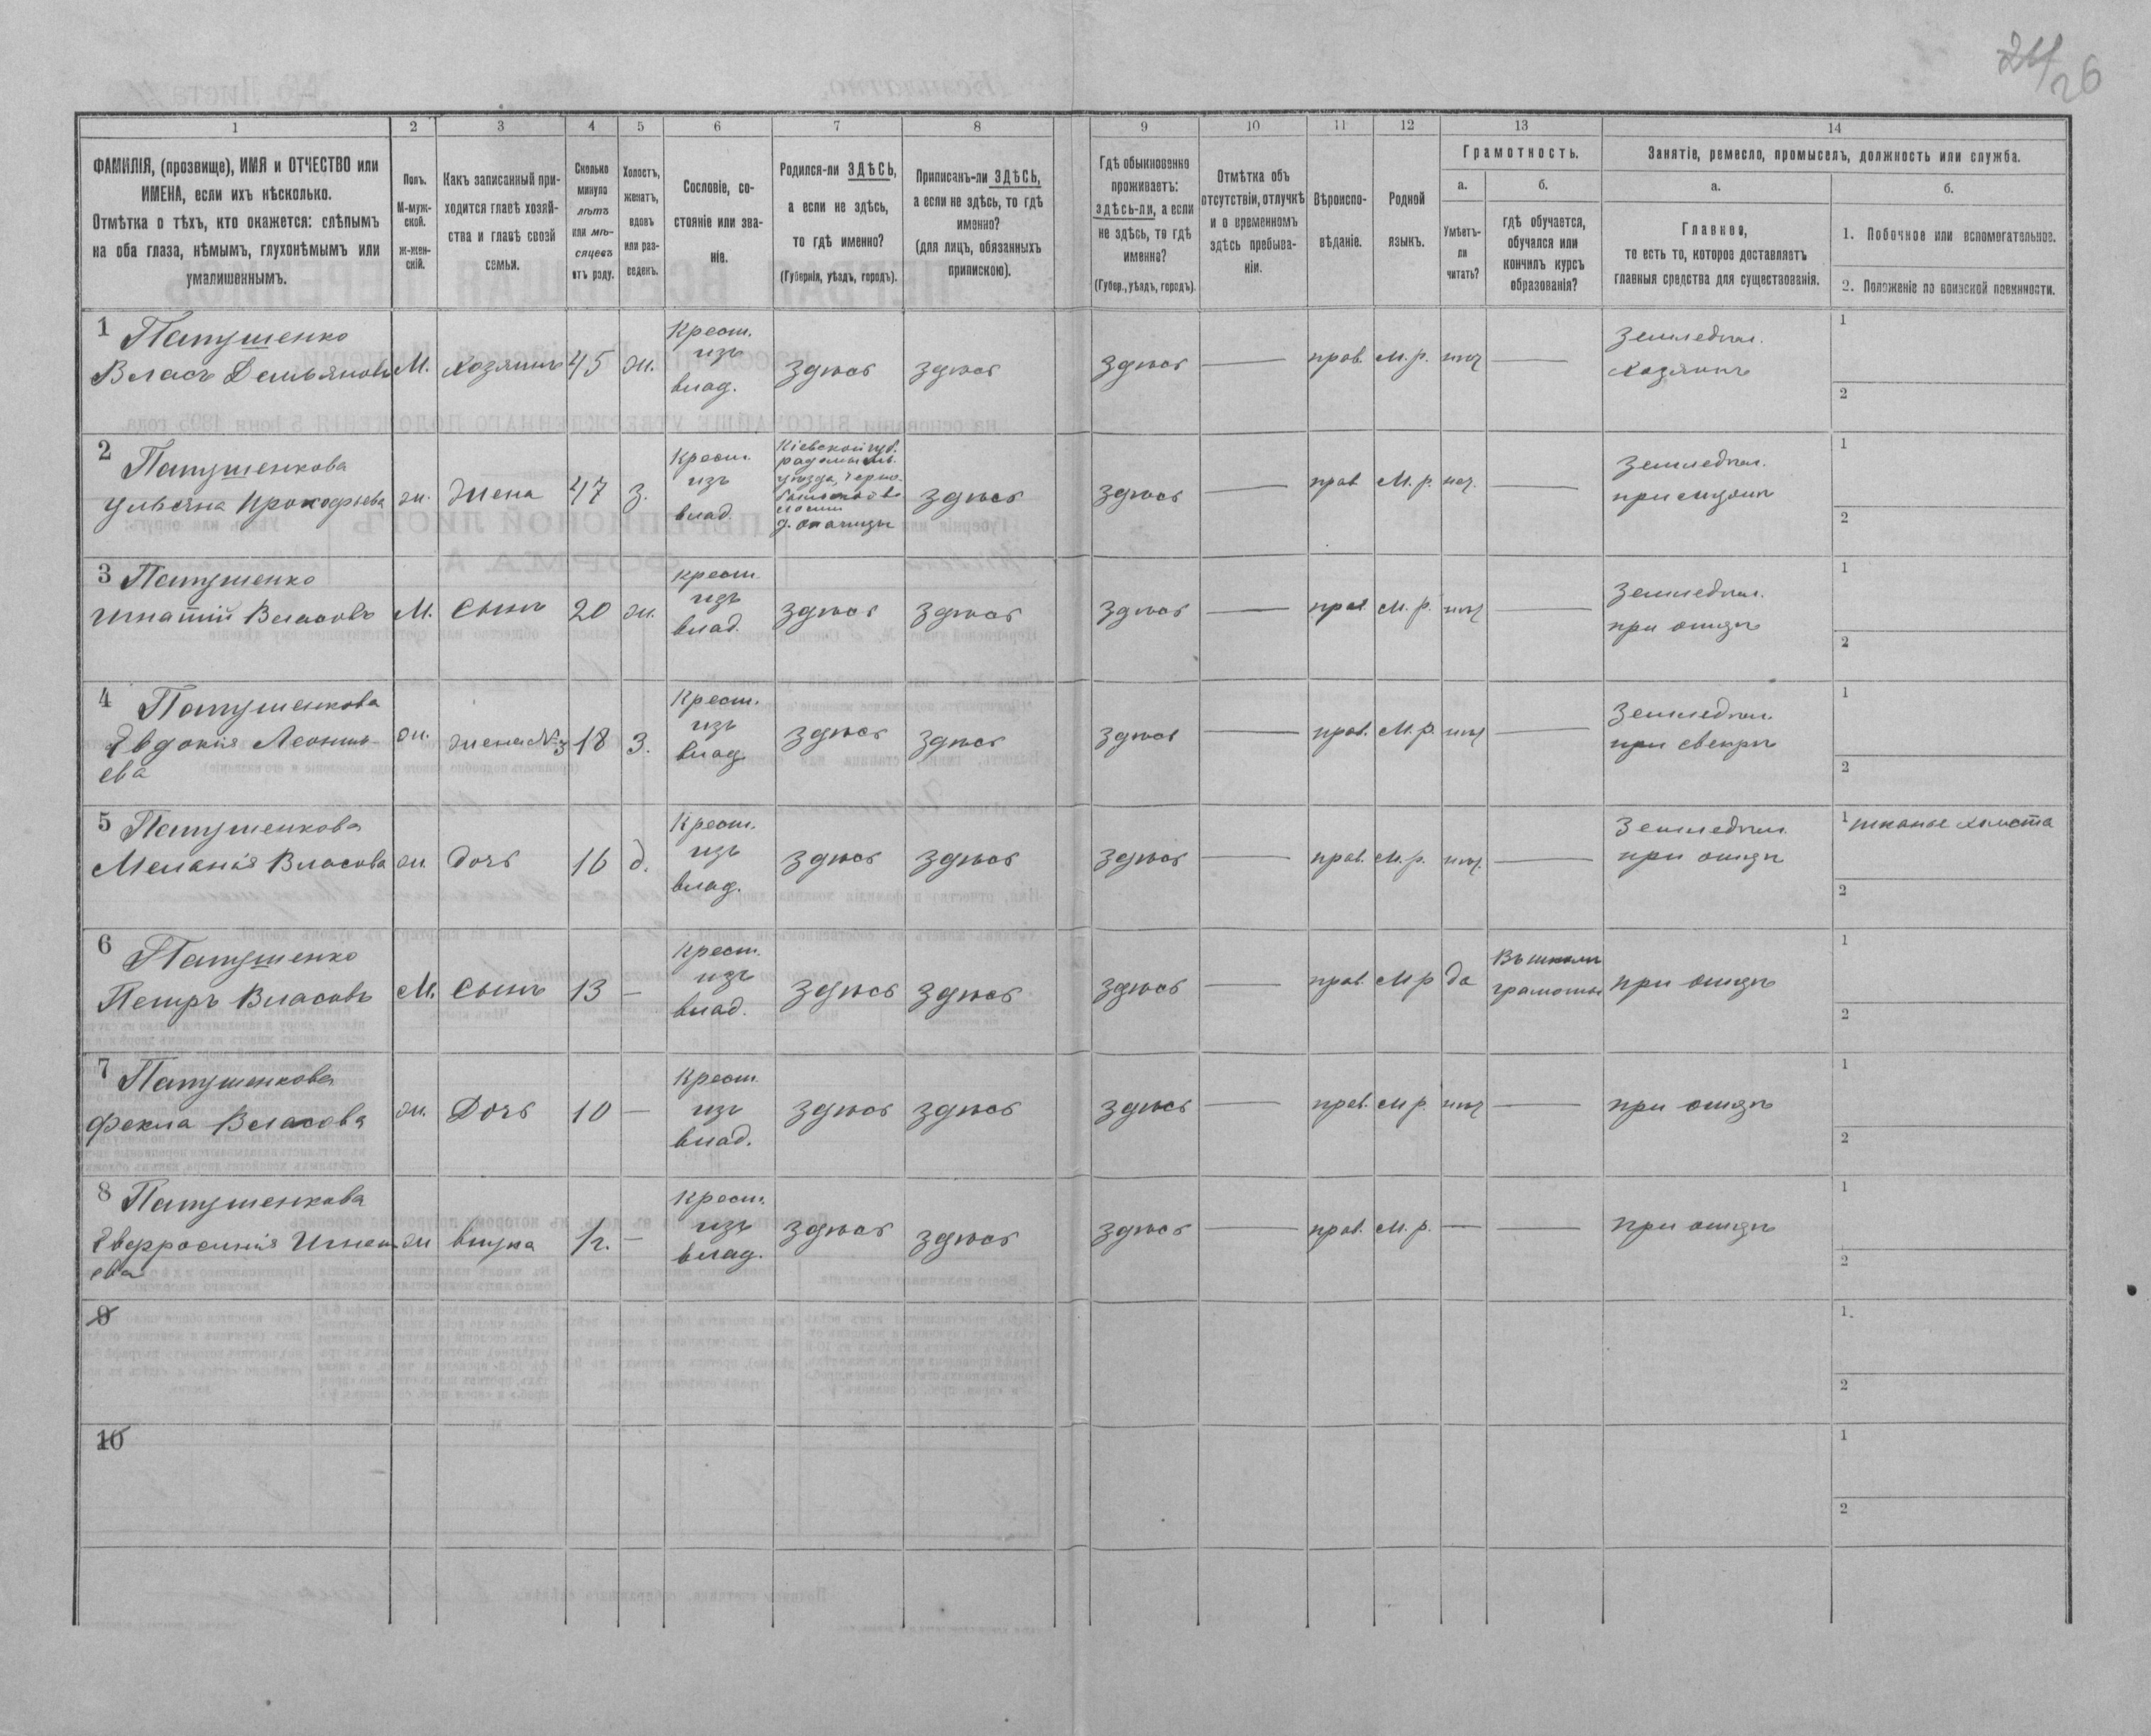 24/26
1 2 3 4 5 6 7 8 9 10 11 12 13 14
ФАМИЛІЯ, (прозвище), ИМЯ и ОТЧЕСТВО или
ИМЕНА, если ихъ нѣсколько.
Отмѣтка о тѣхъ, кто окажется: слѣпымъ
на оба глаза, нѣмымъ, глухонѣмымъ или
умалишеннымъ.
Полъ.
М-муж-
ской.
ж-жен-
скій.
Какъ записанный при-
ходится главѣ хозяй-
ства и главѣ своей
семьи.
Сколько
минуло
лѣтъ
или мѣ-
сяцевъ
отъ роду.
Холостъ,
женатъ,
вдовъ
или раз-
веденъ.
Сословіе, со-
стояніе или зва-
ніе.
Родился-ли ЗДѢСЬ,
а если не здѣсь,
то гдѣ именно?
(Губернія, уѣздъ, городъ).
Приписанъ-ли ЗДѢСЬ,
а если не здѣсь, то гдѣ
именно?
(для лицъ, обязанныхъ
припискою).
Гдѣ обыкновенно
проживаетъ:
здѣсь-ли, а если
не здѣсь, то гдѣ
именно?
(Губер., уѣздъ, городъ).
Отмѣтка объ
отсутствіи, отлучкѣ
и о временномъ
здѣсь пребыва-
ніи.
Вѣроиспо-
вѣданіе.
Родной
языкъ.
Грамотность.
а.
Умѣетъ-
ли
читать?
б.
гдѣ обучается,
обучался или
кончилъ курсъ
образованія?
Занятіе, ремесло, промыселъ, должность или служба.
а.
Главное,
то есть то, которое доставляетъ
главныя средства для существованія.
б.
1. Побочное или вспомогательное.
2. Положеніе по воинской повинности.
1 Папушенко
Власъ Демьяновъ М. хозяинъ 45 ж.
Крест.
изъ
влад.
здѣсь здѣсь здѣсь — прав. М. р. нѣт —
Земледѣл.
Хозяинъ
1
2
2 Папушенкова
Ульяна Прокофьева ж. жена 47 з.
Крест.
изъ
влад.
Кіевской губ.
радомысл.
уѣзда, черно-
быльской в
д. опачицы
здѣсь здѣсь — прав М. р. нѣт. —
Земледѣл.
при мужѣ
1
2
3 Папушенко
Игнатій Власовъ М. Сынъ 20 ж.
крест.
изъ
влад.
здѣсь здѣсь здѣсь — прав М. р. нѣт —
Земледѣл.
при отцѣ
1
2
4 Папушенкова
Евдокія Леонть-
ева
ж. жена №3 18 з.
Крест.
изъ
влад.
здѣсь здѣсь здѣсь — прав. М. р. нѣт —
Земледѣл.
при свекрѣ
1
2
5 Папушенкова
Меланія Власова ж. дочь 16 д.
Крест.
изъ
влад.
здѣсь здѣсь здѣсь — прав. М. р. нѣт. —
Земледѣл.
при отцѣ
1 тканье холста
2
6 Папушенко
Петръ Власовъ М. Сынъ 13 —
Крест.
изъ
влад.
здѣсь здѣсь здѣсь — прав. М р да
Въ школѣ
грамоты
при отцѣ
1
2
7 Папушенкова
Фекла Власова ж. Дочь 10 —
Крест.
изъ
влад.
здѣсь здѣсь здѣсь — прав. М р. нѣт —
при отцѣ
1
2
8 Папушенкова
Евфросинія Игнат
ева
ж внука 1г. —
Крест.
изъ
влад.
здѣсь здѣсь здѣсь — прав. М. р. — —
при отцѣ
1
2
9
1.
2
10
1
2